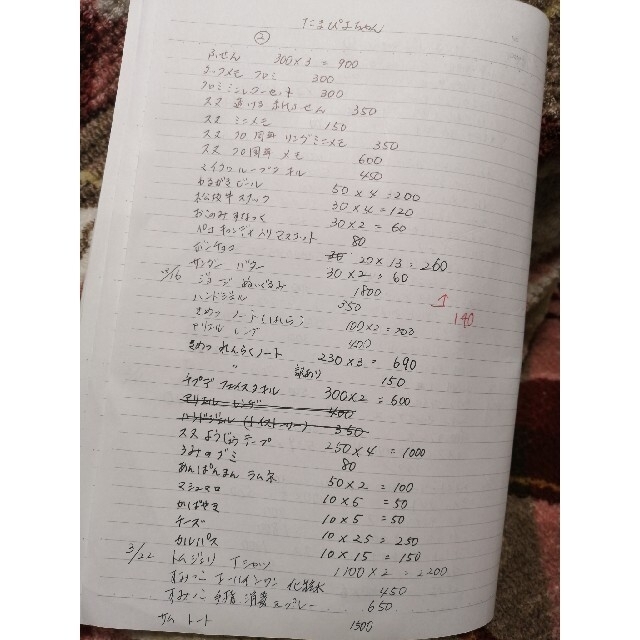 たまぴよちゃん
②
ふせん 300×3=900
ロックメモ クロミ 300
クロミ シルシーセット 300
スヌ 透ける ふせん 350
スヌ ミニメモ 150
スヌ クロ 両面 リングミニメモ 350
スヌ クロ両面 メモ 600
マイクロループタオル 450
やきがきビール 50×4=200
松坂牛スナック 30×4=120
おこのみすなっく 30×2=60
ペコ キャンディ入り マスコット 80
ポンチョコ 20×13=260
サンダー バター 30×2=60
3/16 ジョージ ぬいぐるみ 1800
ハンドジェル 350
140
きめつ ノート 100×2=200
アリエル レンゲ 400
きめつ れんらくノート 230×3=690
〃 訳あり 150
チプデ フェイスタオル 300×2=600
アリエル レンゲ 400
ハンドジェル (トイストーリー) 350
スヌ ようじょうテープ 250×4=1000
うみのグミ 80
あんぱんまん ラムネ 50×2=100
マシュマロ 10×5=50
かばやき 10×5=50
チーズ 10×25=250
カルパス 10×15=150
3/22 トムジェリ Tシャツ 1100×2=2200
すみっこ オールインワン 化粧水 450
すみっこ 手指 消毒スプレー 650
サム トート 1500